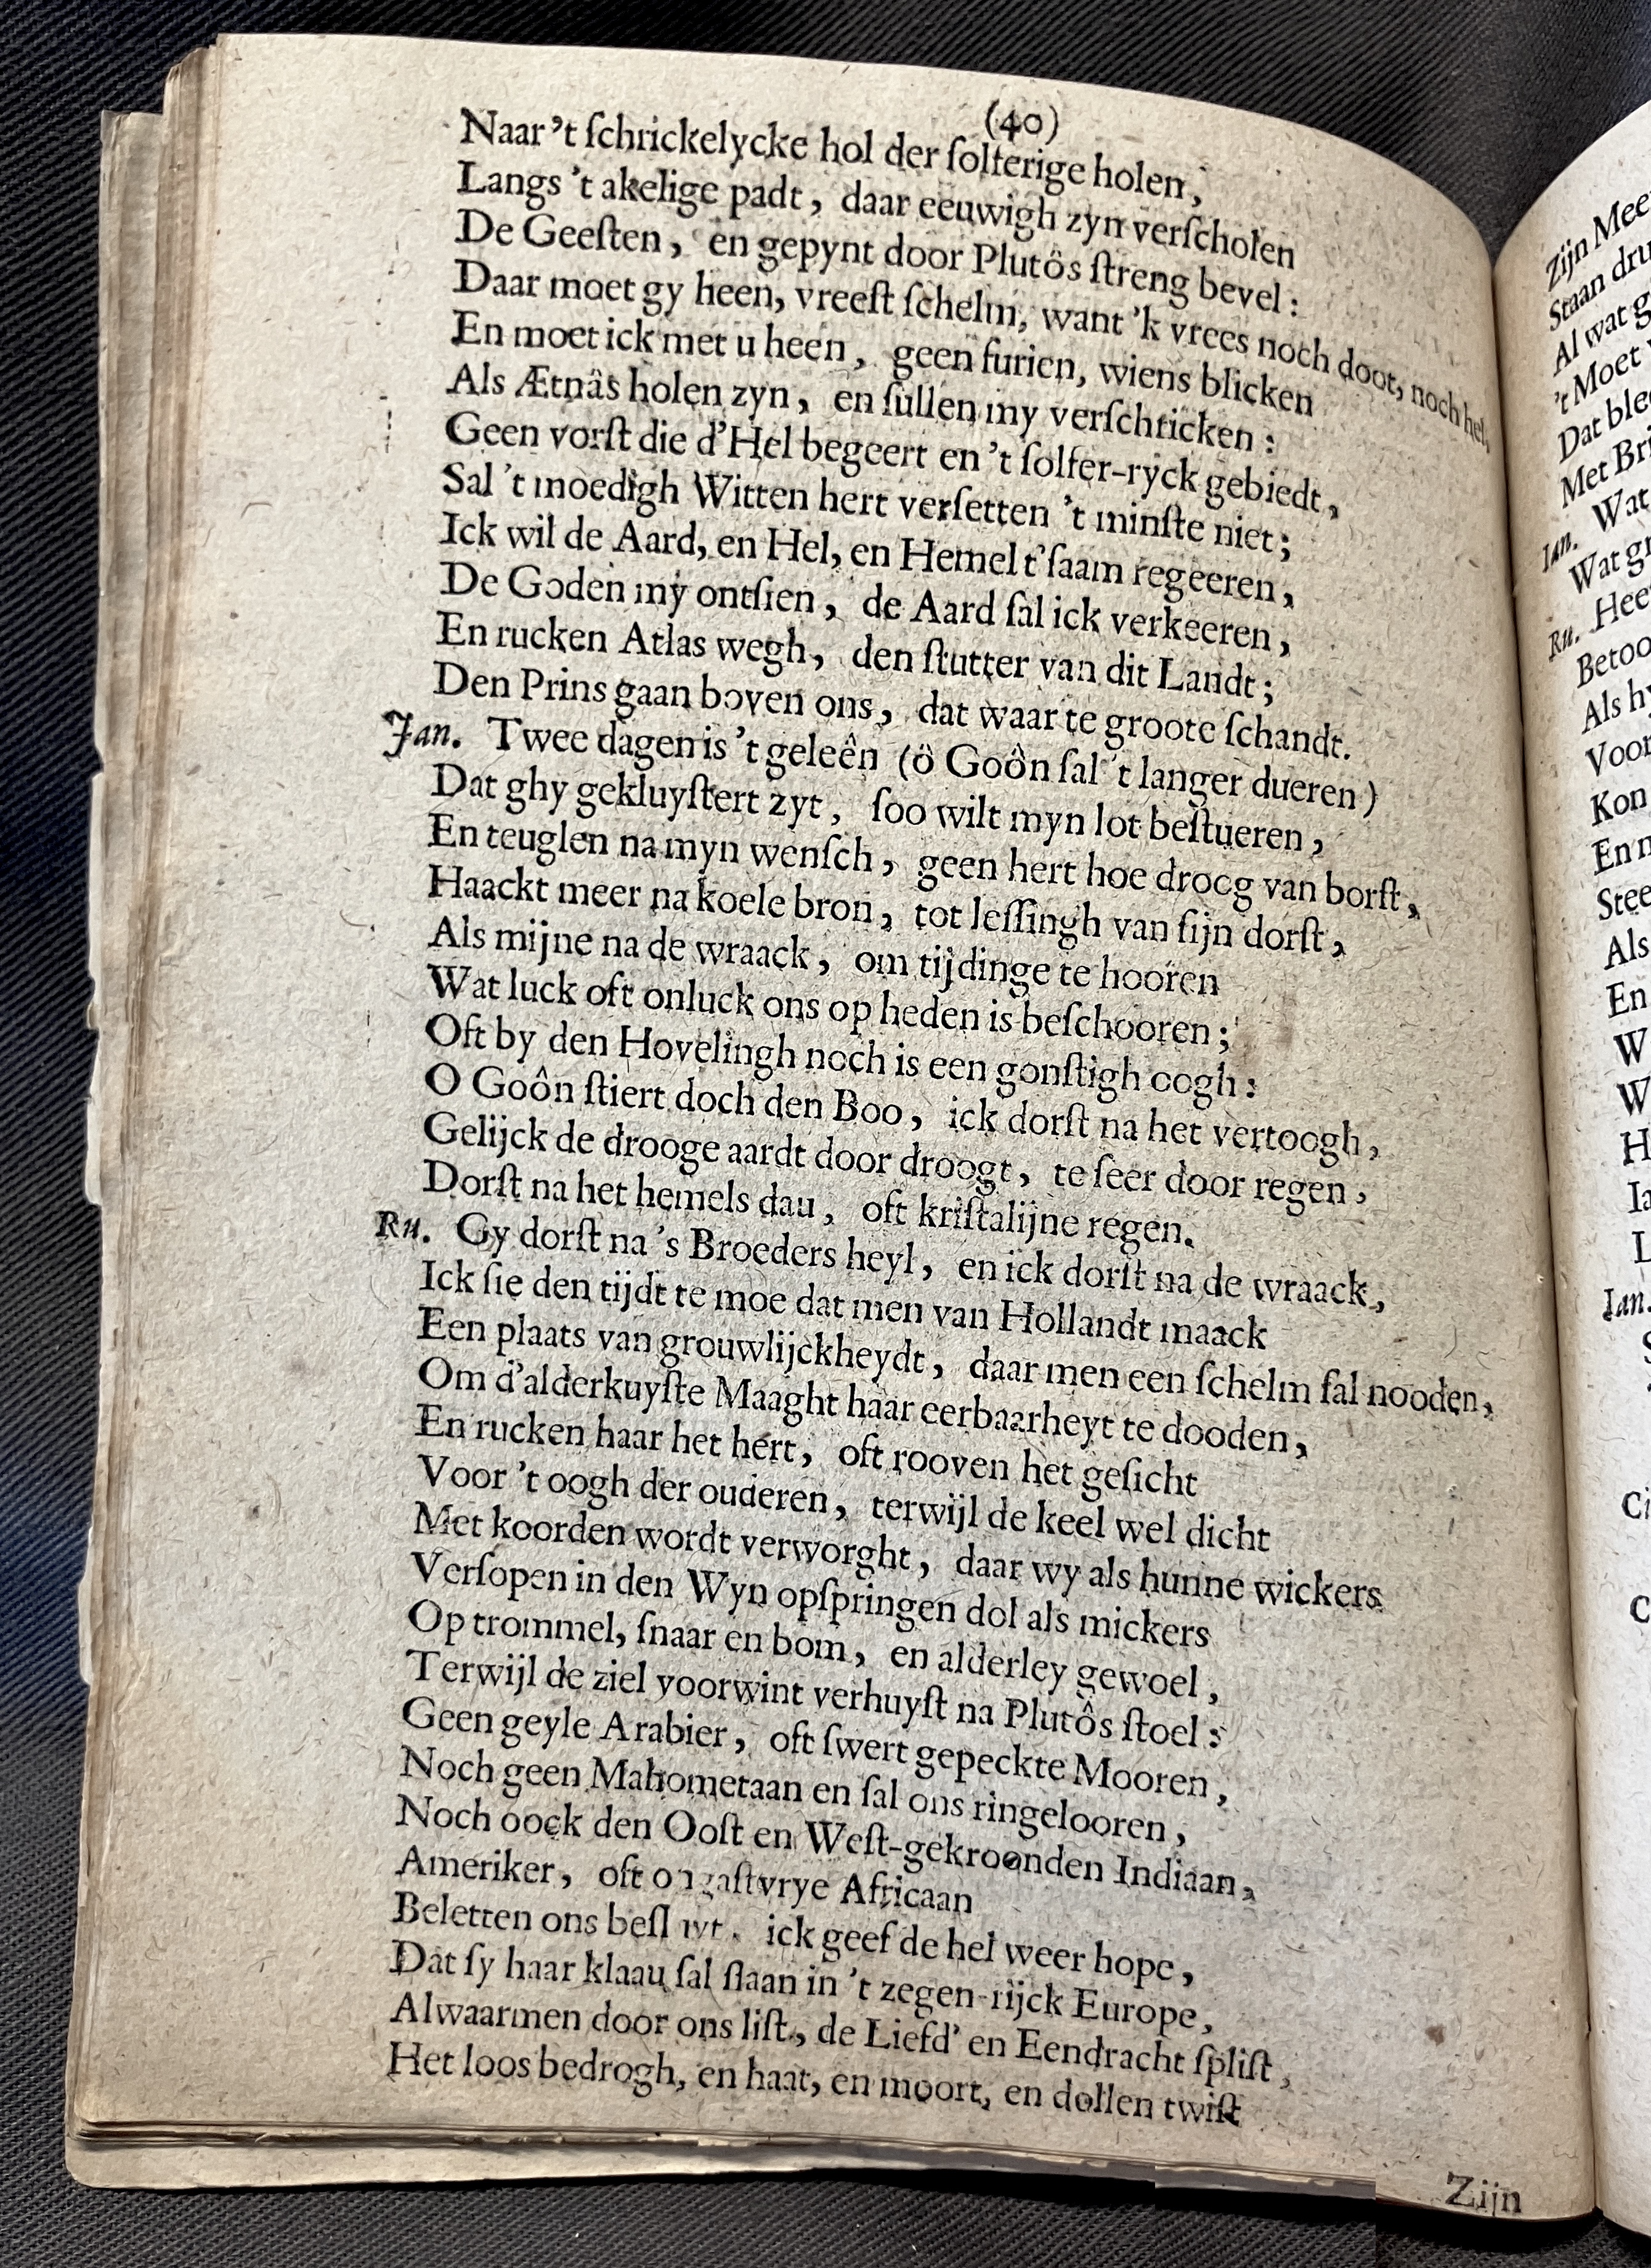 (40)
Naar 't ſchrickelycke hol der ſolferige holen,
Langs 't akelige padt, daar eeuwigh zyn verſcholen
De Geeſten, en gepynt door Plutôs ſtreng bevel:
Daar moet gy heen, vreeſt ſchelm, want 'k vrees noch doot, noch hel,
En moet ick met u heen, geen furien, wiens blicken
Als Ætnâs holen zyn, en ſullen my verſchricken:
Geen vorſt die d'Hel begeert en 't ſolfer-ryck gebiedt,
Sal 't moedigh Witten hert verſetten 't minſte niet;
Ick wil de Aard, en Hel, en Hemel t'ſaam regeeren,
De Goden my ontſien, de Aard ſal ick verkeeren,
En rucken Atlas wegh, den ſtutter van dit Landt;
Den Prins gaan boven ons, dat waar te groote ſchandt.
Jan. Twee dagen is 't geleên (ô Goôn ſal 't langer dueren)
Dat ghy gekluyſtert zyt, ſoo wilt myn lot beſtueren,
En teuglen na myn wenſch, geen hert hoe droog van borſt,
Haackt meer na koele bron, tot leſſingh van ſijn dorſt,
Als mijne na de wraack, om tijdinge te hooren
Wat luck oft onluck ons op heden is beſchooren;
Oft by den Hovelingh noch is een gonſtigh oogh:
O Goôn ſtiert doch den Boo, ick dorſt na het vertoogh,
Gelijck de drooge aardt door droogt, te ſeer door regen,
Dorſt na het hemels dau, oft kriſtalijne regen.
Ru. Gy dorſt na 's Broeders heyl, en ick dorſt na de wraack,
Ick ſie den tijdt te moe dat men van Hollandt maack
Een plaats van grouwlijckheydt, daar men een ſchelm ſal nooden,
Om d'alderkuyſte Maaght haar eerbaarheyt te dooden,
En rucken haar het hert, oft rooven het geſicht
Voor 't oogh der ouderen, terwijl de keel wel dicht
Met koorden wordt verworght, daar wy als hunne wickers
Verſopen in den Wyn opſpringen dol als mickers
Op trommel, ſnaar en bom, en alderley gewoel,
Terwijl de ziel voorwint verhuyſt na Plutôs ſtoel:
Geen geyle Arabier, oft ſwert gepeckte Mooren,
Noch geen Mahometaan en ſal ons ringelooren,
Noch oock den Ooſt en Weſt-gekroonden Indiaan,
Ameriker, oft ongaſtvrye Africaan
Beletten ons ick geef de hel weer hope,
Dat ſy haar klaau ſal ſlaan in 't zegen-rijck Europe,
Alwaarmen door ons liſt, de Liefd' en Eendracht ſpliſt,
Het loos bedrogh, en haat, en moort, en dollen twiſt
Zijn
Zijn Mee
Staan dru
Al wat g
't Moet
Dat ble
Met Bri
Wat
Ian.
Wat gr
Ru. Hee
Betoo
Als hy
Voor
Kon
En n
Stee
Als
En
W
W
H
Ia
L
Ian.